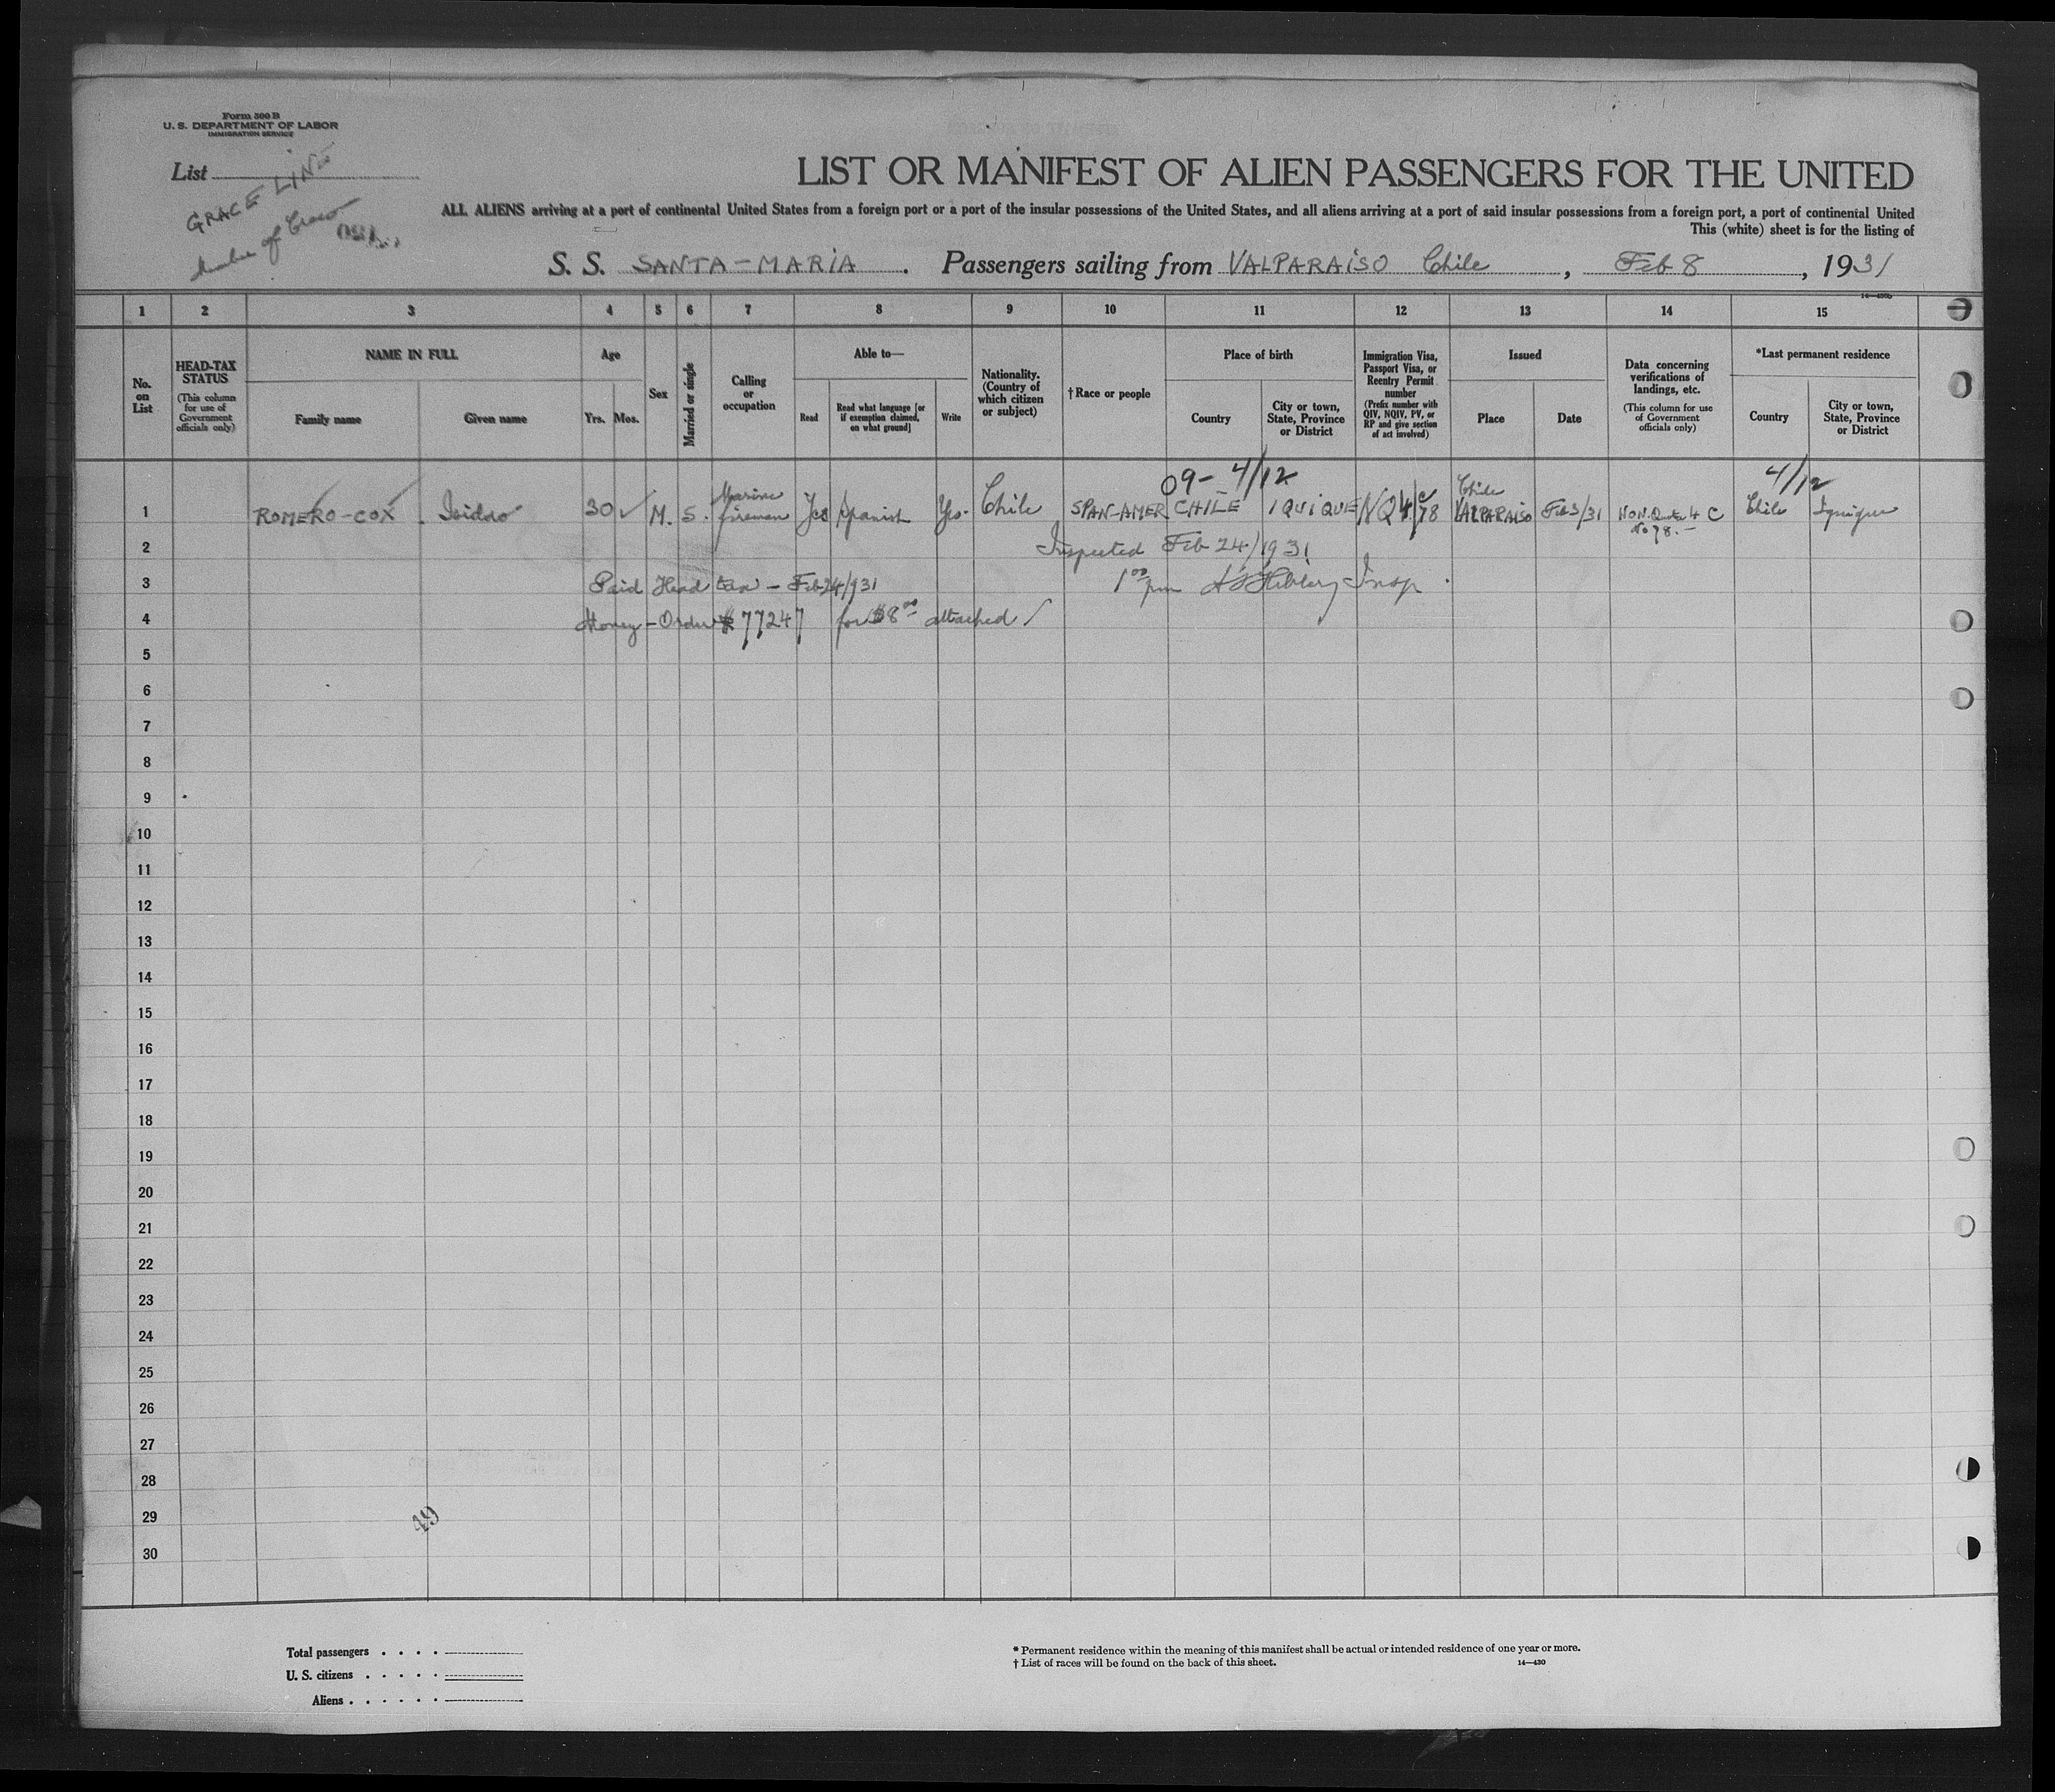 Form 500 B
U. S. DEPARTMENT OF LABOR
IMMIGRATION SERVICE
List
GRACE LINE
of Crew
LIST OR MANIFEST OF ALIEN PASSENGERS FOR THE UNITED
ALL ALIENS arriving at a port of continental United States from a foreign port or a port of the insular possessions of the United States, and all aliens arriving at a port of said insular possessions from a foreign port, a port of continental United
This (white) sheet is for the listing of
S. S. SANTA-MARIA. Passengers sailing from VALPARAISO Chile, Feb 8, 1931
1 2 3 4 5 6 7 8 9 10 11 12 13 14 15
No. on List
HEAD-TAX STATUS (This column for use of Government officials only)
NAME IN FULL
Family name
Given name
Age
Yrs. Mos.
Sex
Married or single
Calling or occupation
Able to—
Read
Read what language [or if exemption claimed, on what ground]
Write
Nationality. (Country of which citizen or subject)
†Race or people
Place of birth
Country
City or town, State, Province or District
Immigration Visa, Passport Visa, or Reentry Permit number (Prefix number with QIV, NQIV, PV, or RP and give section of act involved)
Issued
Place
Date
Data concerning verifications of landings, etc. (This column for use of Government officials only)
*Last permanent residence
Country
City or town, State, Province or District
09- 4/12
4/12
1 ROMERO-COX Isidro 30 M. S. Marine fireman Yes Spanish Yes. Chile SPAN-AMER CHILE IQUIQUE NQ4/c 78 Chile VALPARAISO Feb 3/31 NON. Quota 4 C No 78. Chile Iquique
2 Inspected Feb 24/1931
3 Paid Head tax - Feb 24/931 1 00 pm Insp.
4 Money-Order # 77247 for $8 00 attached
5
6
7
8
9
10
11
12
13
14
15
16
17
18
19
20
21
22
23
24
25
26
27
28
29
30
49
Total passengers . . . .
U. S. citizens . . . . .
Aliens . . . . . .
* Permanent residence within the meaning of this manifest shall be actual or intended residence of one year or more.
† List of races will be found on the back of this sheet.
14—430